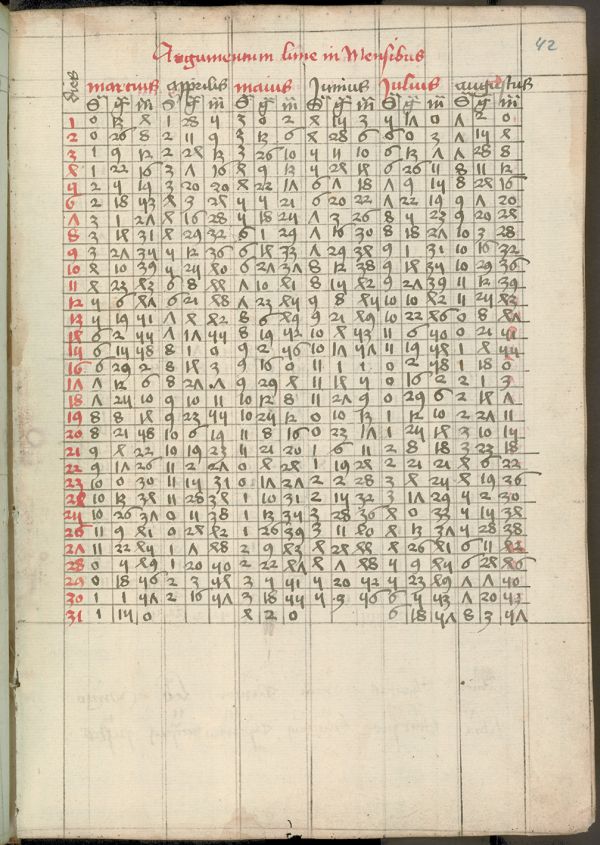 42
Argumentum lune in Mensibus
Dies martius apprilis maius Junius Julius augustus
S g m S g m S g m S g m S g m S g m
1 0 13 4 1 28 5 3 0 2 4 15 3 5 17 0 7 2 0
2 0 26 8 2 11 9 3 13 6 4 28 6 6 0 3 7 15 4
3 1 9 12 2 24 13 3 26 10 5 11 10 6 13 7 7 28 8
4 1 22 16 3 7 16 4 9 13 5 24 14 6 26 11 8 11 12
5 2 5 19 3 20 20 4 22 17 6 7 18 7 9 15 8 24 16
6 2 18 53 4 3 24 5 5 21 6 20 22 7 22 19 9 7 20
7 3 1 27 4 16 28 5 18 25 7 3 26 8 5 23 9 20 24
8 3 14 31 4 29 32 6 1 29 7 16 30 8 18 27 10 3 28
9 3 27 35 5 12 36 6 14 33 7 29 34 9 1 31 10 16 32
10 4 10 39 5 25 40 6 27 37 8 12 38 9 14 35 10 29 36
11 4 23 43 6 8 44 7 10 41 8 15 42 9 27 39 11 12 39
12 5 6 47 6 21 48 7 23 45 9 8 45 10 10 42 11 25 43
13 5 19 51 7 4 52 8 6 49 9 21 49 10 22 46 0 8 47
14 6 2 55 7 17 55 8 19 52 10 4 53 11 6 50 0 21 51
15 6 15 58 8 1 0 9 2 56 10 17 57 11 19 54 1 4 55
16 6 29 2 8 14 3 9 16 0 11 1 1 0 2 58 1 18 0
17 7 12 6 8 27 7 9 29 4 11 14 5 0 16 2 2 1 3
18 7 25 10 9 10 11 10 12 8 11 27 9 0 29 6 2 14 7
19 8 8 14 9 23 15 10 25 12 0 10 13 1 12 10 2 27 11
20 8 21 18 10 6 19 11 8 16 0 23 17 1 25 14 3 10 15
21 9 4 22 10 19 23 11 21 20 1 6 11 2 8 18 3 23 18
22 9 17 26 11 2 27 0 4 24 1 19 24 2 21 21 4 6 22
23 10 0 30 11 15 31 0 17 27 2 2 28 3 4 25 4 19 36
24 10 13 34 11 28 34 1 10 31 2 15 32 3 17 29 5 2 30
25 10 26 37 0 11 38 1 13 35 3 28 36 4 0 32 5 15 34
26 11 9 41 0 24 42 1 26 39 3 11 40 4 13 37 5 28 38
27 11 22 45 1 7 48 2 9 43 4 24 44 4 26 41 6 11 42
28 0 5 49 1 20 50 2 22 47 4 7 48 5 9 45 6 24 46
29 0 18 56 2 3 54 3 5 51 5 20 52 5 23 49 7 7 50
30 1 1 57 2 16 57 3 18 55 5 3 56 6 5 53 7 20 53
31 1 15 0 4 2 0 6 18 57 8 3 57